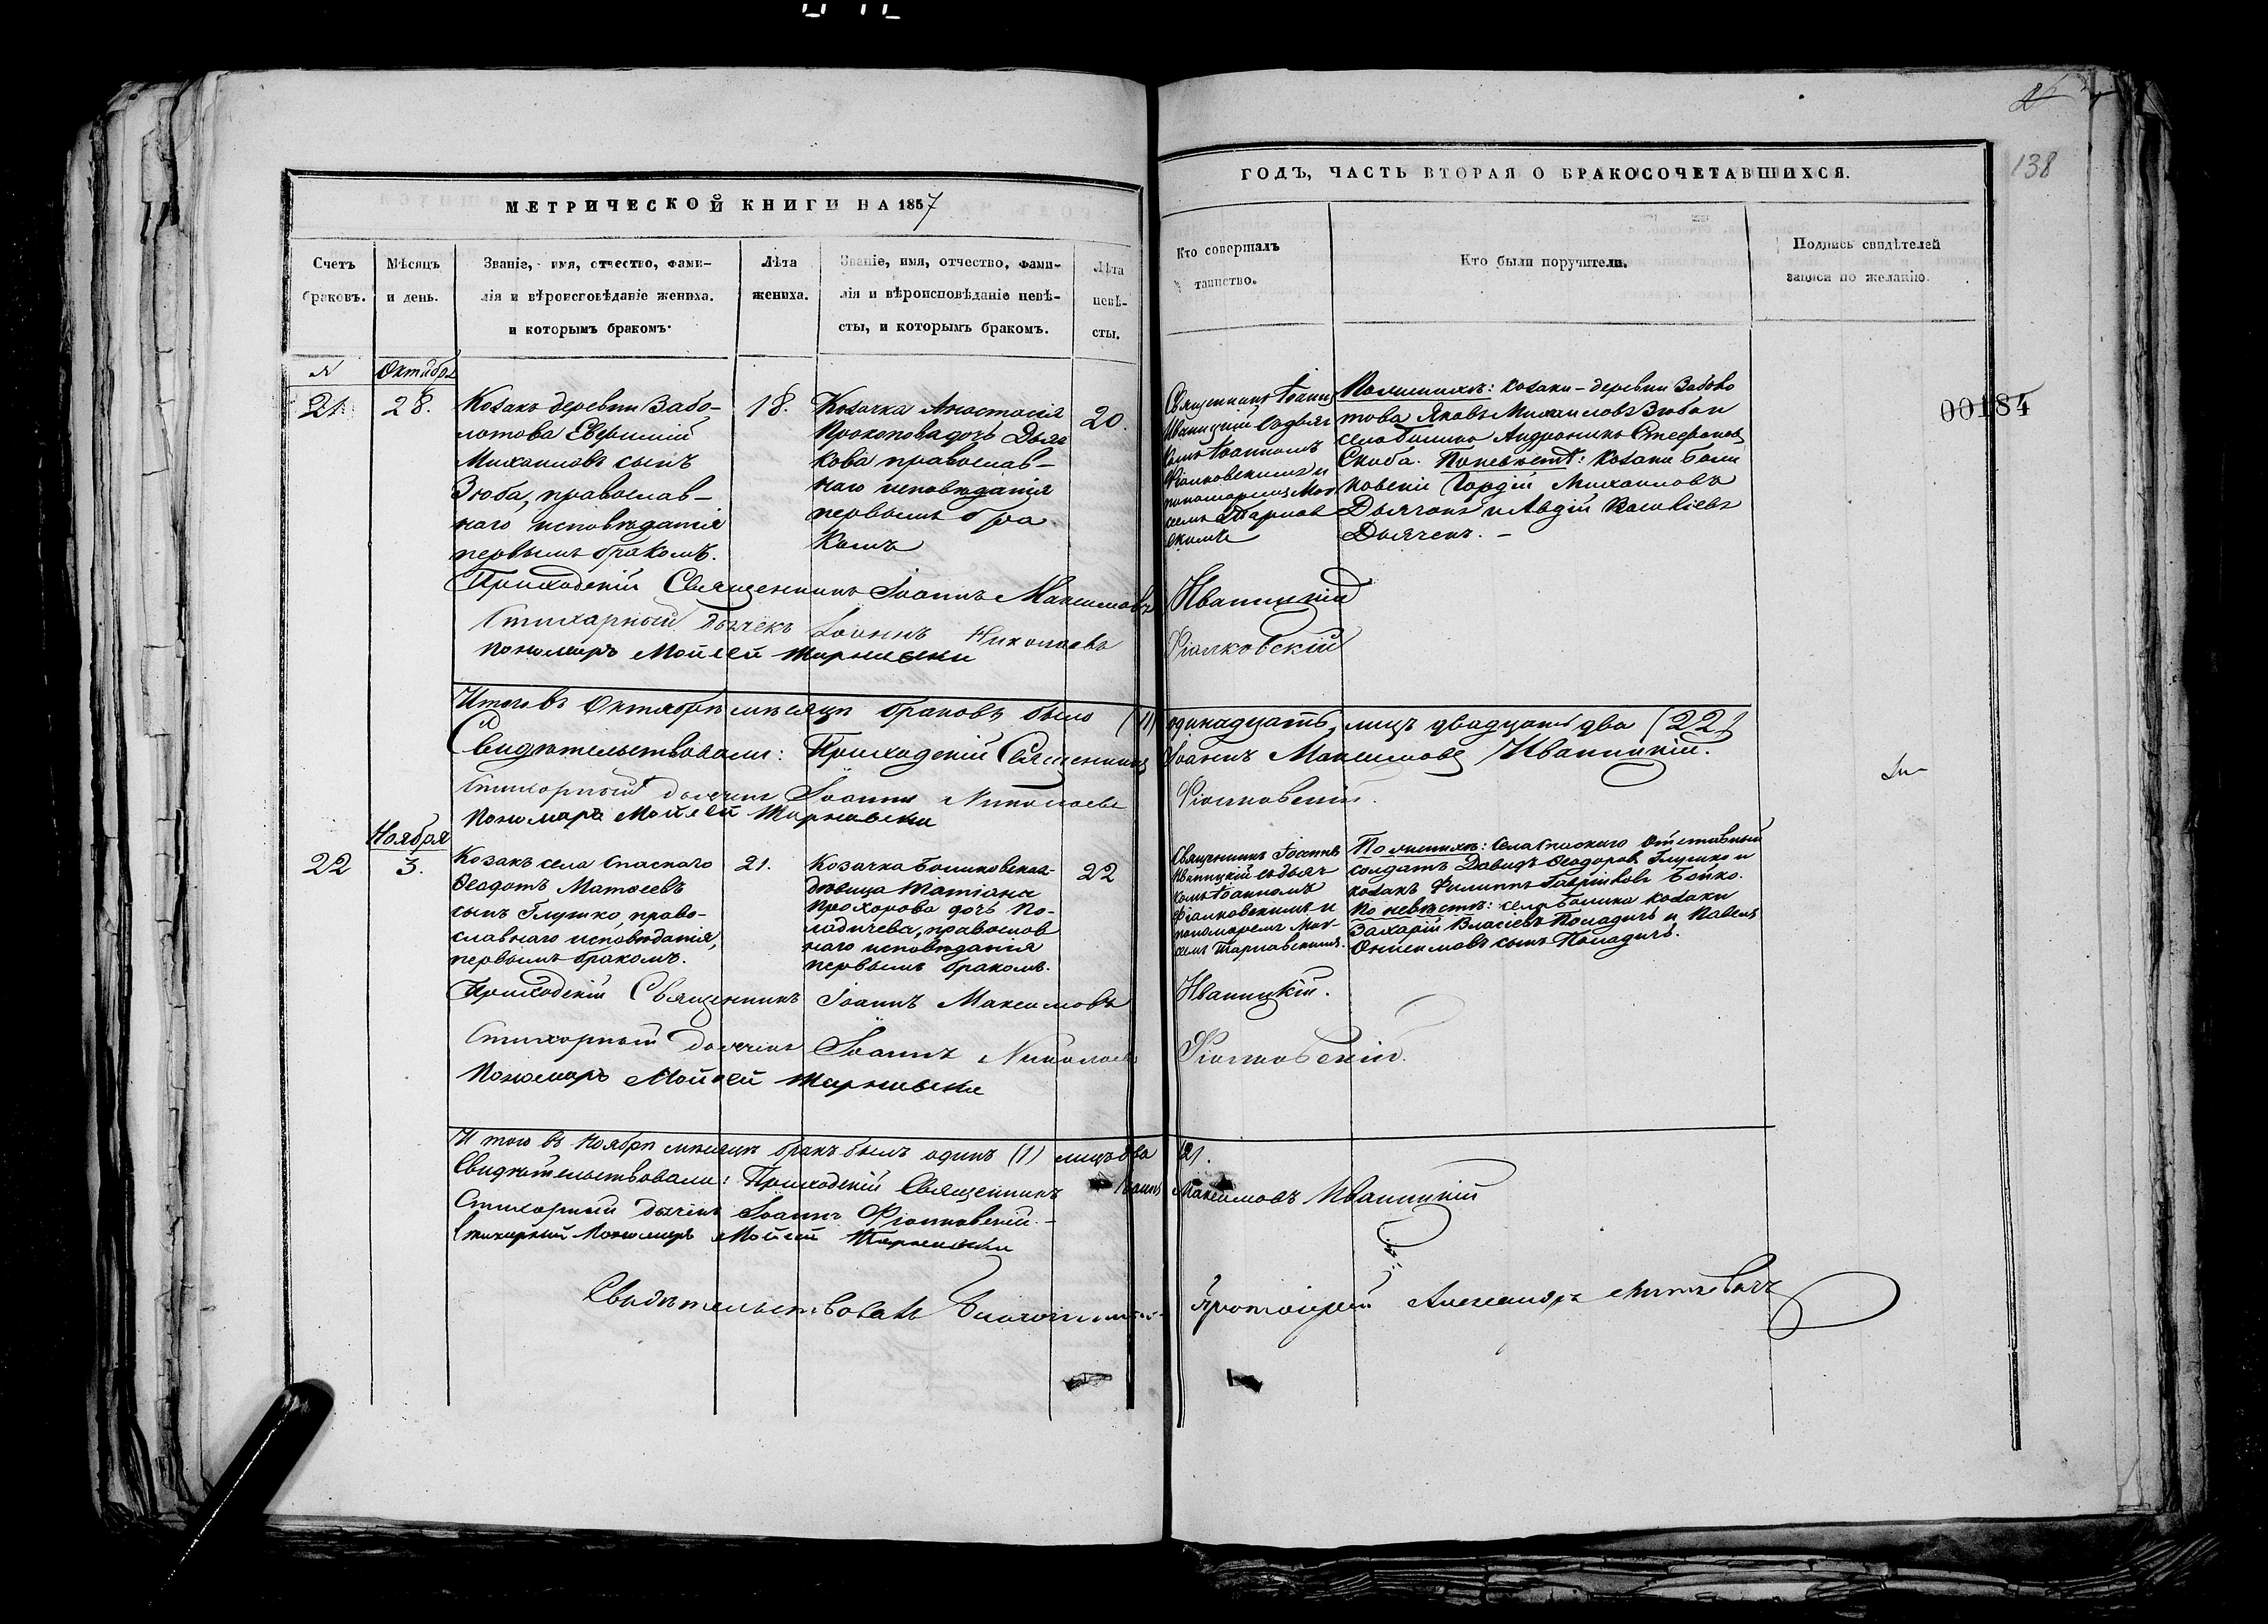 138
00184
МЕТРИЧЕСКОЙ КНИГИ НА 1857
ГОДЪ, ЧАСТЬ ВТОРАЯ О БРАКОСОЧЕТАВШИХСЯ.
Счетъ
браковъ.
Мѣсяцъ
и день.
Званіе, имя, отчество, фами-
лія и вѣроисповѣданіе жениха.
и которымъ бракомъ.
Лѣта
жениха.
Званіе, имя, отчество, фами-
лія и вѣроисповѣданіе невѣ-
сты, и которымъ бракомъ.
Лѣта
невѣ-
сты.
Кто совершалъ
таинство.
Кто были поручители.
Подпись свидѣтелей
записи по желанію.
N
Октября
21.
28.
Козакъ деревни Забо-
лотова
Михаиловъ сынъ
Зюба, православ-
наго исповѣданія
первымъ бракомъ.
18.
Козачка Анастасія
Прокопова дочь Дьяч
кова православ-
наго исповѣданія
первымъ бра
комъ
20.
Священникъ Іоаннъ
Иваницкій съ дьяч
комъ Іоанномъ
Фіалковскимъ и
пономаремъ Мои
сеемъ Тарнав
скимъ
По женихѣ: козаки деревни Забо
това Яковъ Михаиловъ Зюба и
села Андроникъ Стефановъ
Скиба. По невѣстѣ: козаки
Гордій Михаиловъ
Дьяченъ и Авдій
Дьяченъ. -
Приходскій Священникъ Іоаннъ Максимовъ Иваницкій
Стихарный дьячекъ Іоаннъ Николаевъ Фіалковскій
пономаръ Мойсей Тарнавски
Итого въ Октябрѣ мѣсяцѣ браковъ было (11) одинадцать, лицъ двадцать два (22)
Свидѣтельствовали: Приходскій Священникъ Іоаннъ Максимовъ Иваницкій.
Стихарный дьячекъ Іоаннъ Николаевъ Фіалковскій.
Пономаръ Мойсей Тарнавски
Ноября
22
3.
Козакъ села Спаского
Ѳеодотъ Матѳеевъ
сынъ Глушко, право-
славнаго исповѣданія,
первымъ бракомъ.
21.
Козачка
дѣвица Татіана
Прохорова дочь По-
ладичева, православ
наго исповѣданія
первымъ бракомъ.
22
Священникъ Іоаннъ
Иваницкій съ дьяч
комъ Іоанномъ
Фіалковскимъ и
пономаремъ Мои-
сеемъ Тарнавскимъ.
По женихѣ: Села Спаского отставный
солдатъ Давидъ Ѳеодоровъ Глушко и
козакъ Филиппъ Гавріиловъ Бойко.
По невѣстѣ: села козаки
Захарій Власіевъ Поладичъ и Павелъ
Онисимовъ сынъ Поладичъ.
Приходскій Священникъ Іоаннъ Максимовъ Иваницкій.
Стихарный дьячекъ Іоаннъ Николаевъ Фіалковскій.
Пономаръ Мойсей Тарнавски
И того въ Ноябрѣ мѣсяцѣ бракъ былъ одинъ (1) лицъ два (2).
Свидѣтельствовали: Приходскій Священникъ Іоаннъ Максимовъ Иваницкій
Стихарный дьячекъ Іоаннъ Фіалковскій. -
Стихарный Пономаръ Мойсей Тарнавски
Свидѣтельствовалъ Благочинный Протоіерей Александръ